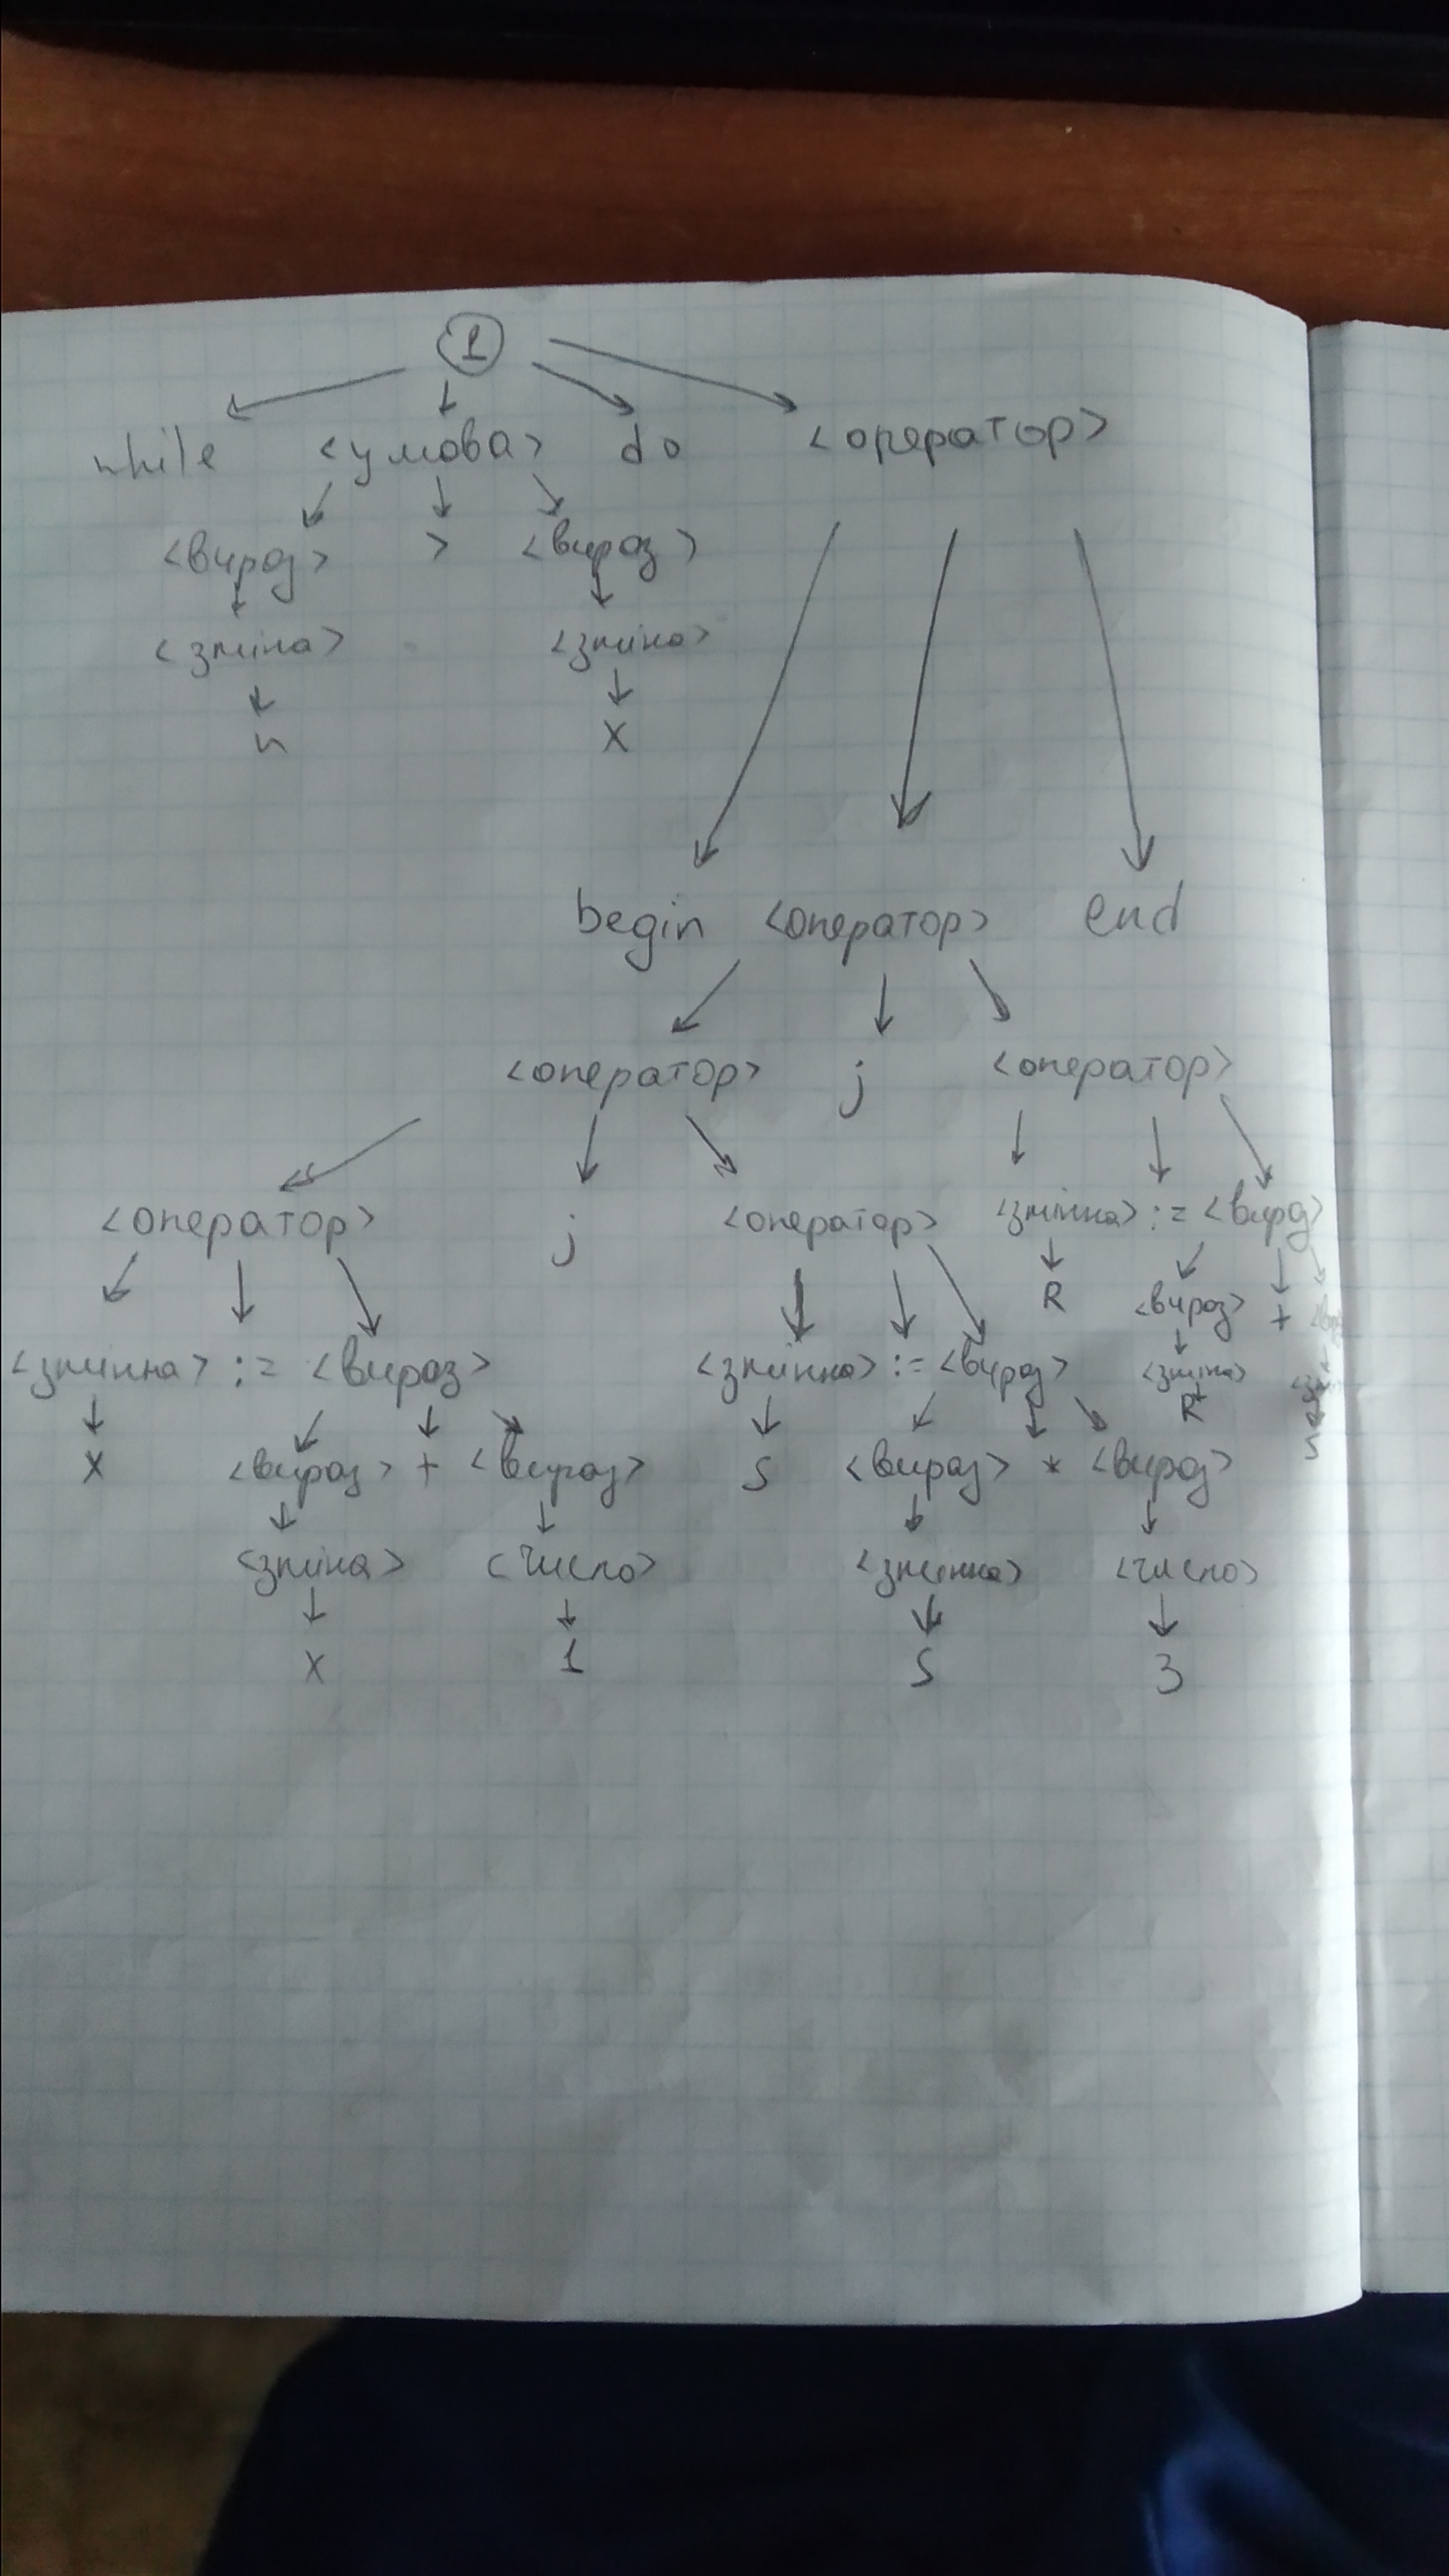 1
while <умова> do <оператор>
<вираз> > <вираз>
<зміна> <зміна>
n x
begin <оператор> end
<оператор> ; <оператор>
<оператор> ; <оператор> <змінна> := <вираз>
R <вираз> +
<змінна> := <вираз> <змінна> := <вираз> <зміна>
R
x <вираз> + <вираз> S <вираз> * <вираз> S
<зміна> <число> <змінна> <число>
x 1 S 3